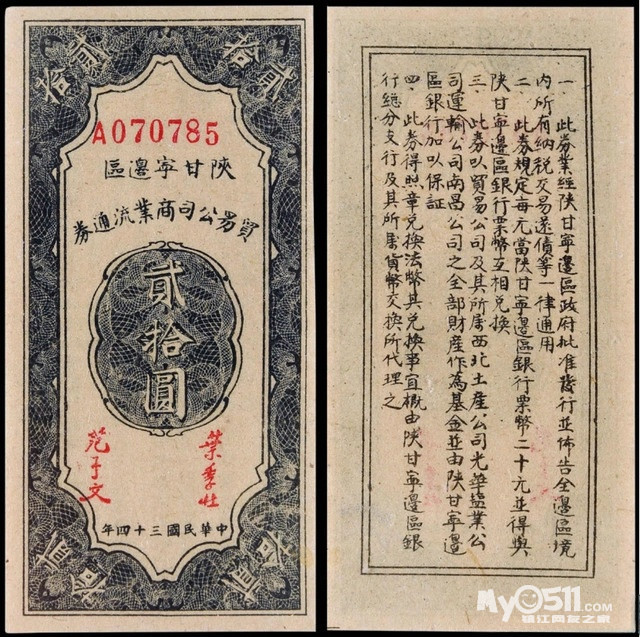 貳拾
貳拾
A070785
陝甘寧邊區
貿易公司商業流通券
貳拾圓
葉季壯
范子文
中華民國三十四年
貳拾
貳拾
一. 此券業經陝甘寧邊區政府批准發行並佈告全邊區境
內所有納税交易還債等一律通用
二. 此券規定每元當陝甘寧邊區銀行票幣二十元並得與
陝甘寧邊區銀行票幣互相兑換
三. 此券以貿易公司及其所屬西北土産公司光華鹽業公
司運輸公司南昌公司之全部財産作為基金並由陝甘寧邊
區銀行加以保証
四. 此券得照章兑換法幣其兑換事宜概由陝甘寧邊區銀
行總分支行及其所屬貨幣交換所代理之
My0511.com
镇江网友之家